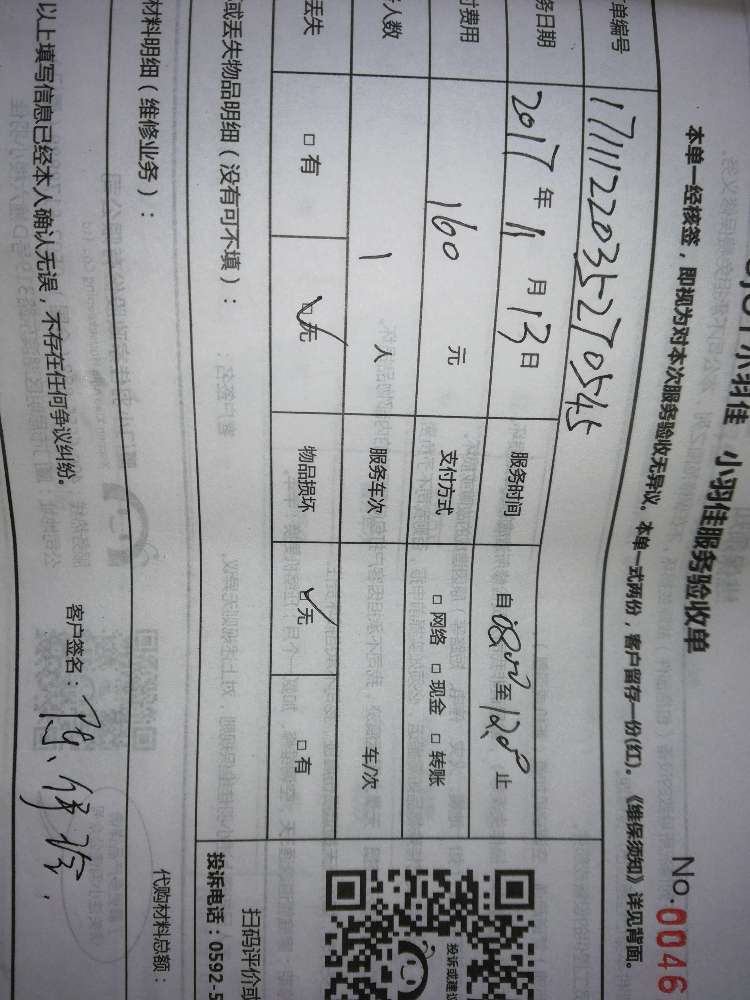 小羽佳 小羽佳服务验收单
No.0046
本单一经核签，即视为对本次服务验收无异议。本单一式两份，客户留存一份(红)。《维保须知》详见背面。
单编号 1711122035270545
务日期 2017年11月13日 服务时间 自08:00至12:00止
付费用 160元 支付方式 □网络 □现金 □转账
人数 1人 服务车次 车/次
丢失 □有 ☑无 物品损坏 ☑无 □有
或丢失物品明细（没有可不填）：
材料明细（维修业务）：
代购材料总额：
以上填写信息已经本人确认无误，不存在任何争议纠纷。
客户签名：陈
投诉或建议
扫码评价或
投诉电话：0592-5